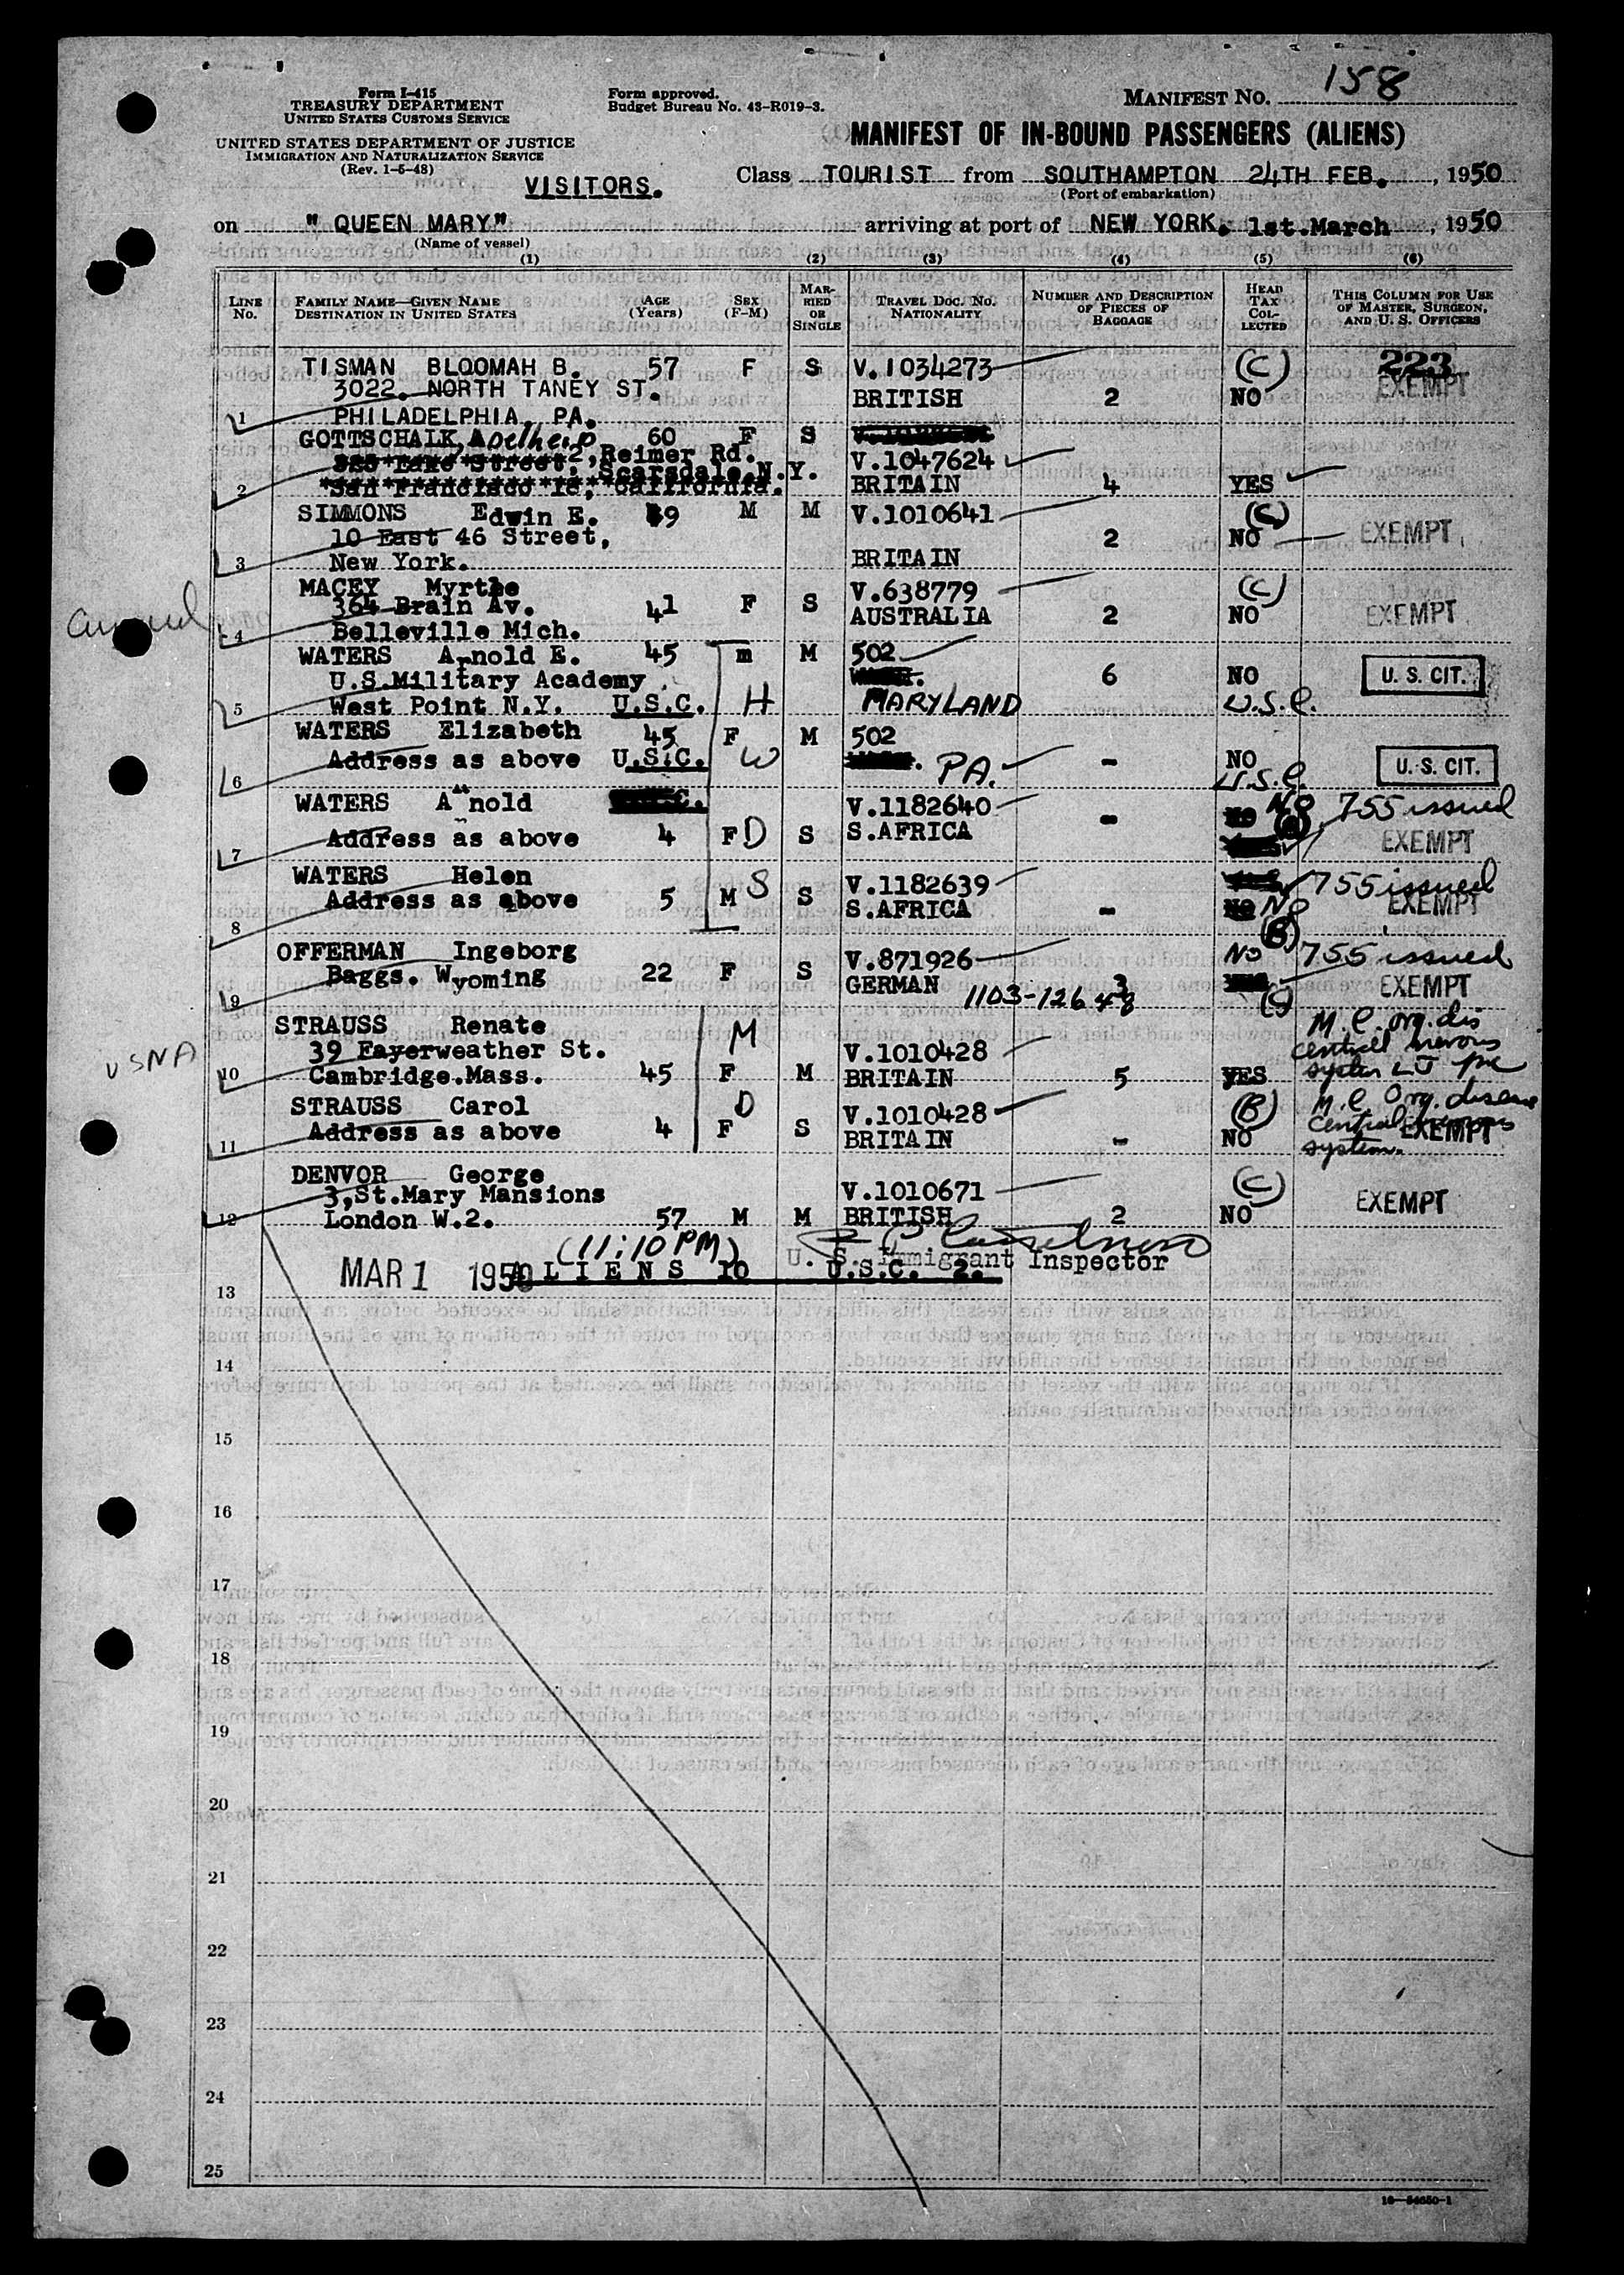 158
Form I-415
TREASURY DEPARTMENT
UNITED STATES CUSTOMS SERVICE
UNITED STATES DEPARTMENT OF JUSTICE
IMMIGRATION AND NATURALIZATION SERVICE
(Rev. 1-5-48)
Form approved.
Budget Bureau No. 43-R019-3.
MANIFEST NO.
MANIFEST OF IN-BOUND PASSENGERS (ALIENS)
VISITORS.
Class TOURIST from SOUTHAMPTON 24TH FEB. , 1950
(Port of embarkation)
on " QUEEN MARY" arriving at port of NEW YORK. 1st.March , 1950
(Name of vessel)
(1) (2) (3) (4) (5) (6)
LINE NO. FAMILY NAME—GIVEN NAME DESTINATION IN UNITED STATES AGE (Years) SEX (F-M) MARRIED OR SINGLE TRAVEL DOC. NO. NATIONALITY NUMBER AND DESCRIPTION OF PIECES OF BAGGAGE HEAD TAX COLLECTED THIS COLUMN FOR USE OF MASTER, SURGEON, AND U. S. OFFICERS
TISMAN BLOOMAH B. 57 F S V.1034273 (C) 223
3022. NORTH TANEY ST. EXEMPT
1 PHILADELPHIA, PA. BRITISH 2 NO
GOTTSCHALK, Adelheid 60 F S
2, Reimer Rd. V.1047624
Scarsdale N.Y.
2 San Francisco California. BRITAIN 4 YES
SIMMONS Edwin E. 49 M M V.1010641 (C)
10 East 46 Street, 2 NO EXEMPT
3 New York. BRITAIN
MACEY Myrthe V.638779 (C)
364 Brain Av. 41 F S AUSTRALIA 2 NO EXEMPT
4 Belleville Mich.
WATERS Arnold E. 45 m M 502
U.S.Military Academy 6 NO U. S. CIT.
5 West Point N.Y. U.S.C. H MARYLAND U.S.C.
WATERS Elizabeth 45 F M 502
6 Address as above U.S.C. W PA. - NO U. S. CIT.
U.S.C.
WATERS Arnold V.1182640 - NO 755 issued
7 Address as above 4 F D S S.AFRICA EXEMPT
WATERS Helen V.1182639 755 issued
8 Address as above 5 M S S S.AFRICA - NO EXEMPT
(B)
OFFERMAN Ingeborg V.871926 NO 755 issued
9 Baggs. Wyoming 22 F S GERMAN 3 (C) EXEMPT
STRAUSS Renate M M.C. org. dis
39 Fayerweather St. V.1010428 central nervous
10 Cambridge.Mass. 45 F M BRITAIN 5 YES system
USNA
STRAUSS Carol D V.1010428 (B) M.C Org. disease
11 Address as above 4 F S BRITAIN - NO central nervous EXEMPT
system.
DENVOR George V.1010671 (C)
3,St.Mary Mansions EXEMPT
12 London W.2. 57 M M BRITISH 2 NO
(11:10 PM)
U. S. Immigrant Inspector
MAR 1 1950 ALIENS 10 U.S.C. 2.
13
14
15
16
17
18
19
20
21
22
23
24
25